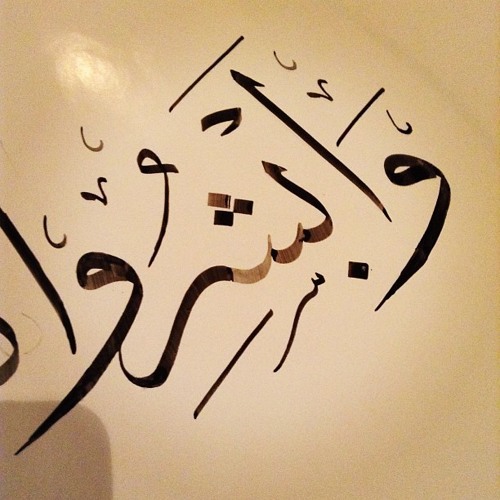 وَأَبْشِرُوا